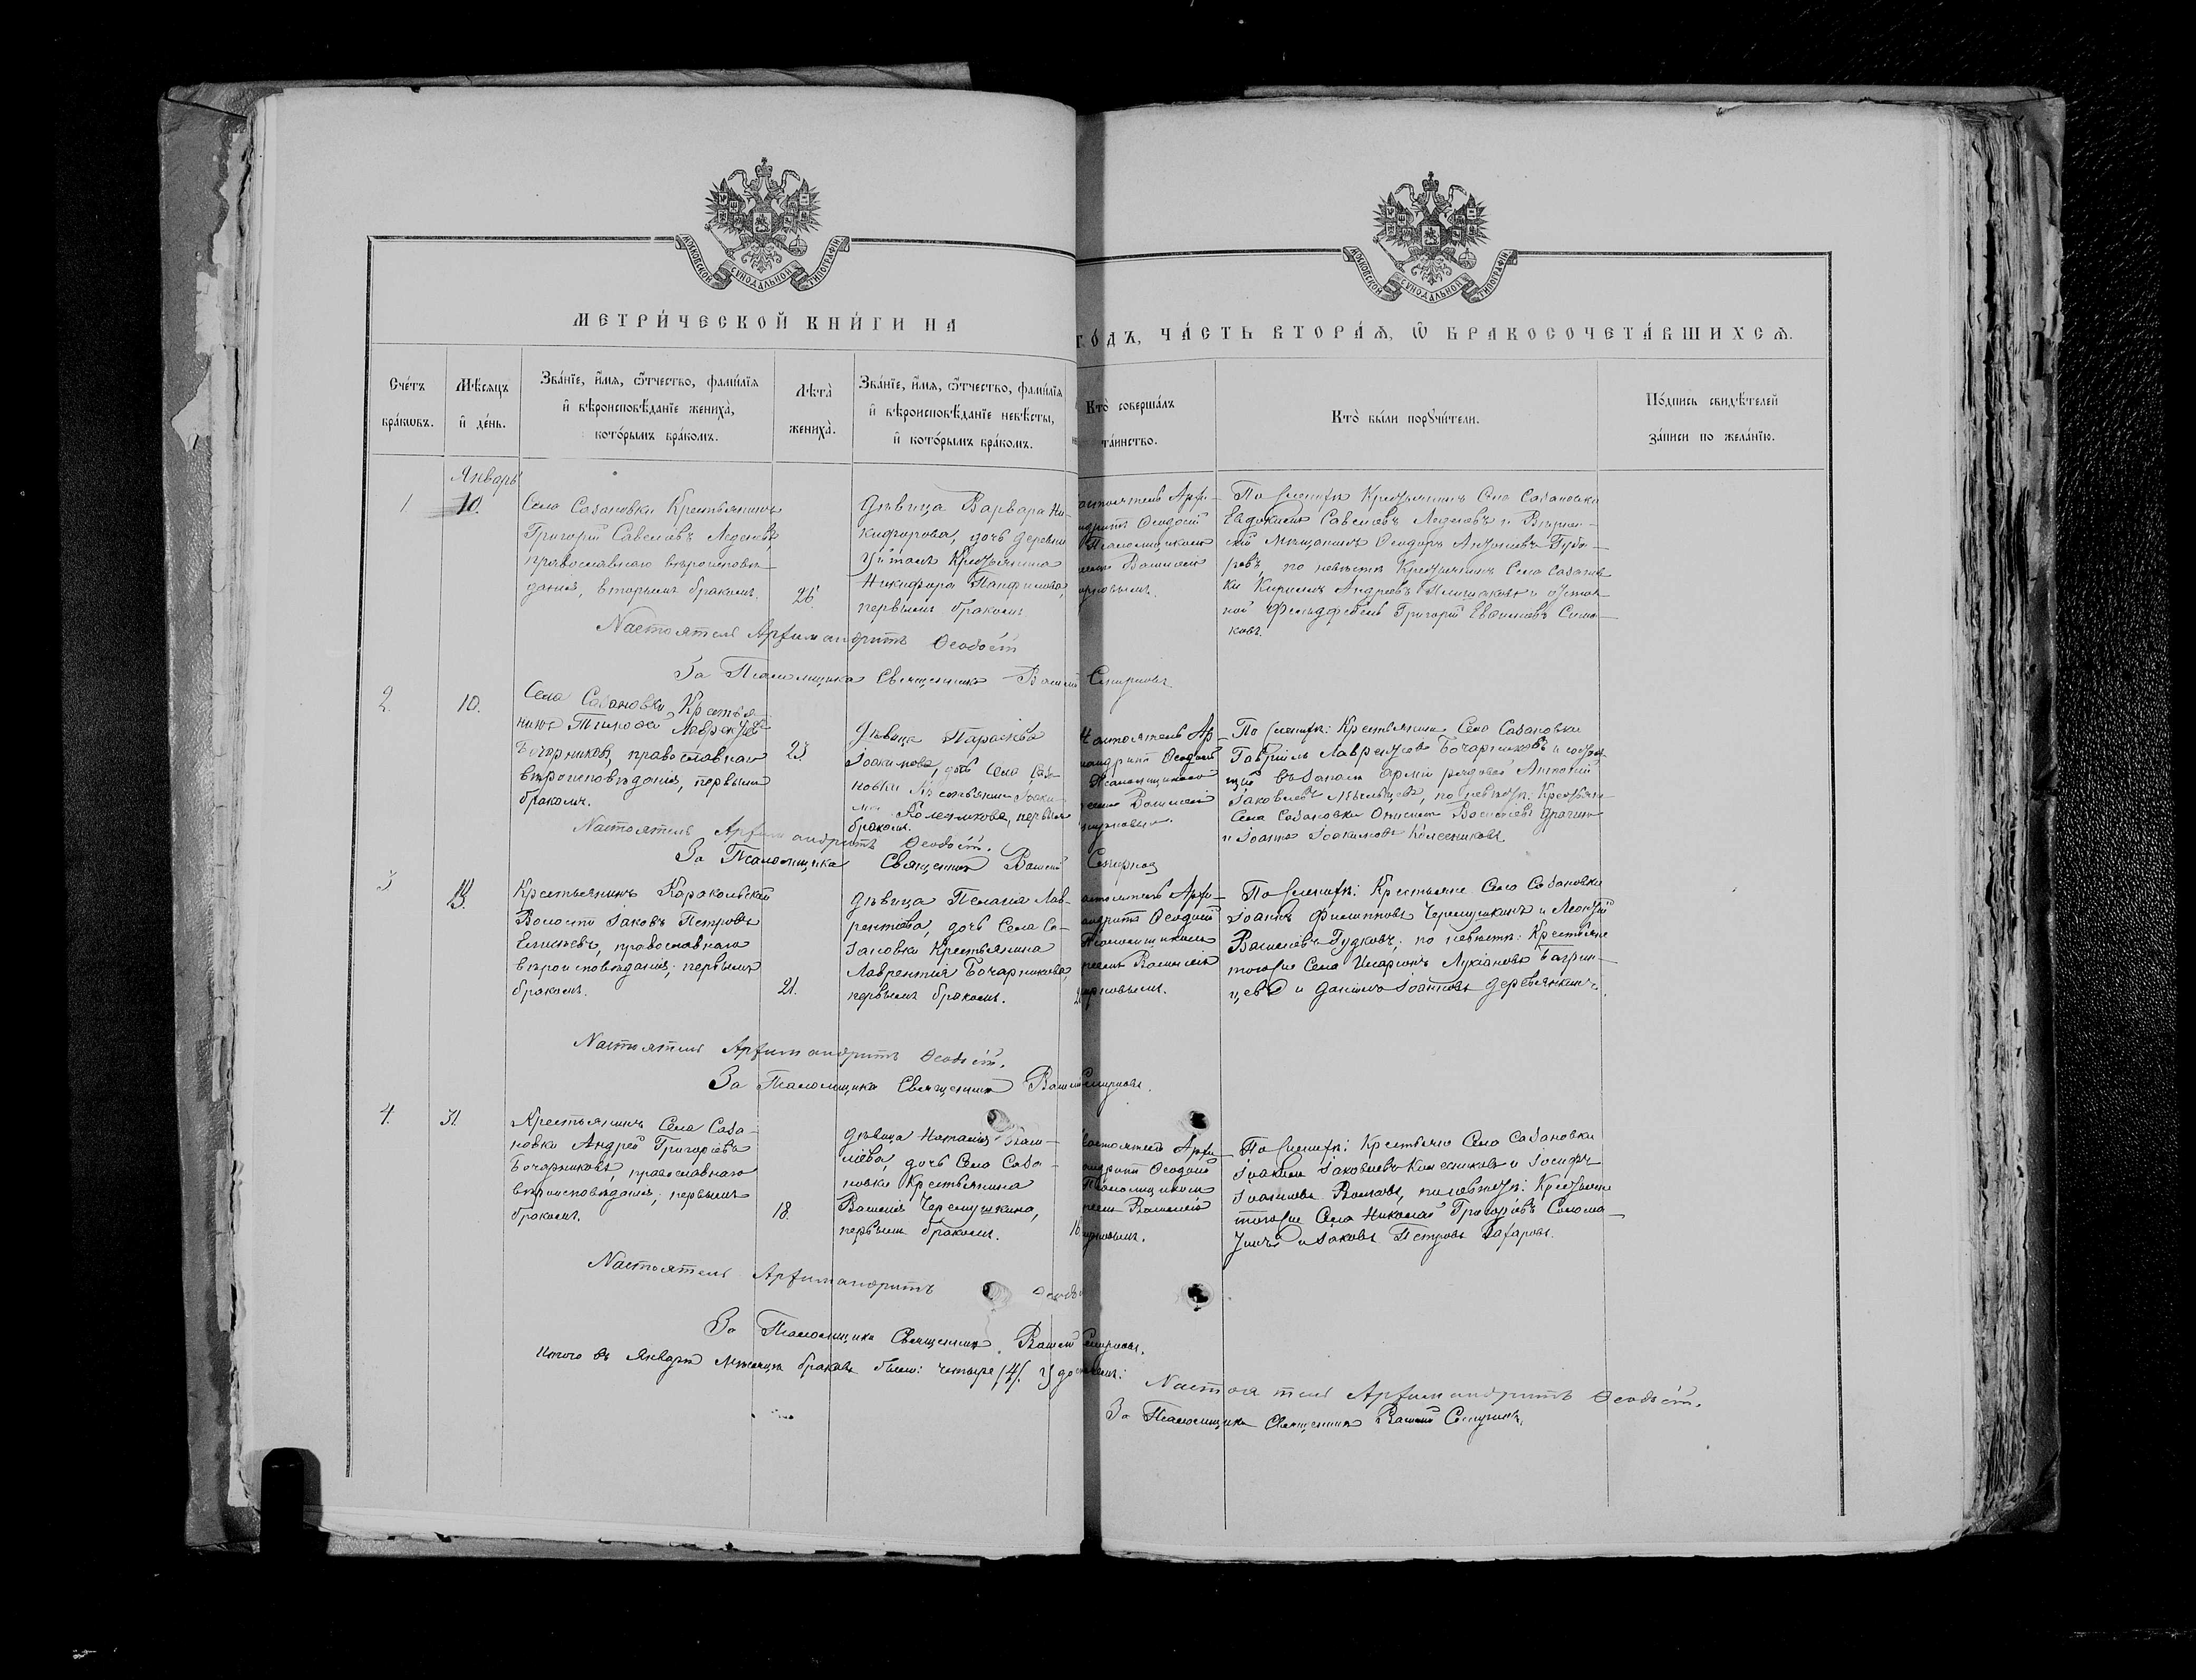 МОСКОВСКОЙ СѴНОДАЛЬНОЙ ТИПОГРАФІИ
МОСКОВСКОЙ СѴНОДАЛЬНОЙ ТИПОГРАФІИ
МЕТРИ́ЧЕСКОЙ КНИ́ГИ НА
ГО́ДЪ, ЧА́СТЬ ВТОРА́Я, Ѿ БРАКОСОЧЕТА́ВШИХСЯ.
Сче́тъ
бра́ковъ.
Мѣ́сяцъ
и҆ де́нь.
Зва́нїе, и҆́мя, ѻ҆́тчество, фами́лїя
и҆ вѣроисповѣ́данїе жениха̀,
кото́рымъ бра́комъ.
Лѣ́та̀
жениха̀.
Зва́нїе, и҆́мя, ѻ҆́тчество, фами́лїя
и҆ вѣроисповѣ́данїе невѣ́сты,
и҆ кото́рымъ бра́комъ.
Кто̀ соверша́лъ
та́инство.
Кто̀ бы́ли порꙋчи́тели.
По́дпись свидѣ́телей
за́писи по жела́нїю.
Январь
1
10.
Села Сазановки Крестьянинъ
Григорій Савеловъ Леденевъ,
православнаго вѣроисповѣ-
данія, вторымъ бракомъ.
26.
Дѣвица Варвара Ни-
кифорова, дочь деревни
Крестьянина
Никифора Панфилова
первымъ бракомъ
астоятель Архи-
андритъ Ѳеодосій
Псаломщикомъ
Василіемъ
ирновымъ.
По женихѣ Крестьянинъ Села Сазановки
Евдокимъ Савеловъ Леденевъ и Вѣрнен-
скій Мѣщанинъ Ѳеодоръ Антоновъ Губа-
ревъ, по невѣстѣ Крестьянинъ Села Сазанов-
ки Кириллъ Андреевъ и отстав-
ной Фельдфебель Григорій Евѳимовъ Сима-
ковъ.
Настоятель Архимандритъ Ѳеодосій
За Псаломщика Священникъ Василій Смирновъ
2.
10.
Села Сазановки Крестья-
нинъ Тимоѳей Лаврентіевъ
Бочарниковъ, православнаго
вѣроисповѣданія, первымъ
бракомъ.
23.
Дѣвица Параскева
Іоакимова, дочь Села Саза-
новки Крестьянина Іоаки-
ма Колесникова, первымъ
бракомъ.
Настоятель Ар-
мандритъ Ѳеодосій
Псаломщикомъ
Василій
мирновымъ
По женихѣ: Крестьянинъ Села Сазановки
Гавріилъ Лаврентіевъ Бочарниковъ и состоя-
щій въ запасѣ арміи рядовой Антоній
Іаковлевъ по невѣстѣ: Крестьяне
Села Сазановки Онисимъ Васильевъ Драгинъ
и Іоаннъ Іоакимовъ Колесниковъ
Настоятель Архимандритъ Ѳеодосій.
За Псаломщика Священникъ Василій Смирновъ
3
13.
Крестьянинъ Каракольской
Волости Іаковъ Петровъ
Елисѣевъ, православнаго
вѣроисповѣданія, первымъ
бракомъ.
21.
Дѣвица Пелагія Лав-
рентіева, дочь Села Са-
зановки Крестьянина
Лаврентія Бочарникова,
первымъ бракомъ.
астоятель Архи-
андритъ Ѳеодосій
Псаломщикомъ
Василіемъ
ирновымъ.
По женихѣ: Крестьяне Села Сазановки
Іоаннъ Филипповъ Черемушкинъ и Леонтій
Васильевъ Гудковъ; по невѣстѣ: Крестьяне
тогоже Села Иларіонъ Лукіановъ Багрин-
цевъ и Даніилъ Іоанновъ Деревянкинъ.
Настоятель Архимандритъ Ѳеодосій.
За Псаломщика Священникъ Василій Смирновъ.
4.
31.
Крестьянинъ Села Саза-
новки Андрей Григоріевъ
Бочарниковъ, православнаго
вѣроисповѣданія, первымъ
бракомъ.
18.
Дѣвица Наталія Васи-
ліева, дочь Села Саза-
новки Крестьянина
Василія Черемушкина,
первымъ бракомъ.
16
астоятель Архи-
андритъ Ѳеодосій
Псаломщикомъ
Василіемъ
ирновымъ.
По женихѣ: Крестьяне Села Сазановки
Іоакимъ Іаковлевъ Колесниковъ и Іосифъ
Іоакимовъ Волковъ, по невѣстѣ: Крестьяне
тогоже Села Николай Григоріевъ Солома-
тинъ и Іаковъ Петровъ Захаровъ.
Настоятель Архимандритъ Ѳеодо
За Псаломщика Священникъ Василій Смирновъ.
Итого въ Январѣ мѣсяцѣ браковъ было: четыре /4/. Удостовѣряемъ:
Настоятель Архимандритъ Ѳеодосій.
За Псаломщика Священникъ Василій Смирновъ.